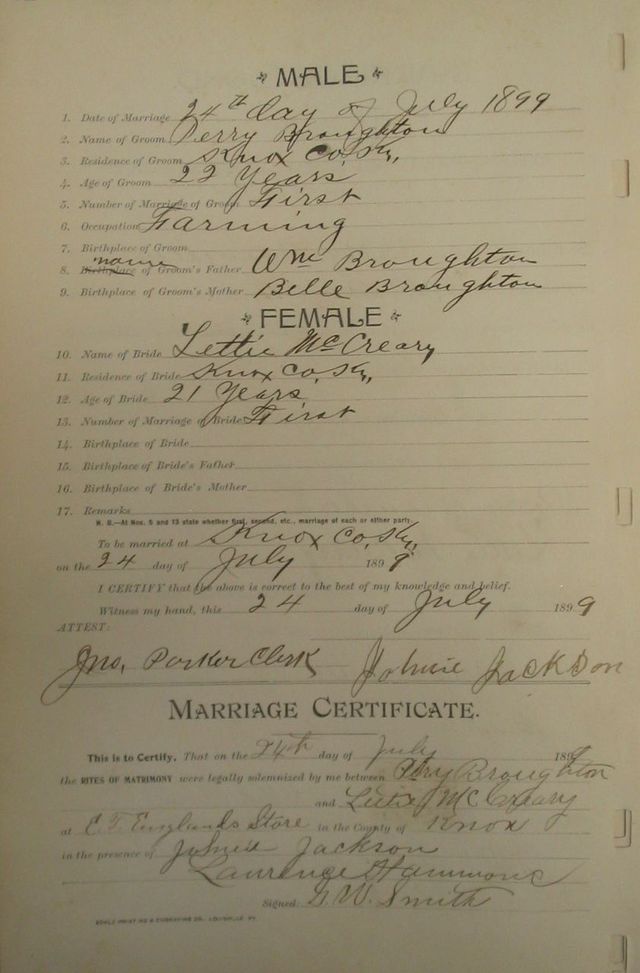 MALE
1. Date of Marriage 24th day of July 1899
2. Name of Groom Perry Broughton
3. Residence of Groom Knox Co, Ky,
4. Age of Groom 22 Years
5. Number of Marriage of Groom First
6. Occupation Farming
7. Birthplace of Groom
8. Birthplace name of Groom's Father Wm Broughton
9. Birthplace of Groom's Mother Belle Broughton
FEMALE
10. Name of Bride Lettie McCreary
11. Residence of Bride Knox Co, Ky,
12. Age of Bride 21 Years
13. Number of Marriage of Bride First
14. Birthplace of Bride
15. Birthplace of Bride's Father
16. Birthplace of Bride's Mother
17. Remarks
N. B.—At Nos. 5 and 13 state whether first, second, etc., marriage of each or either party.
To be married at Knox Co, Ky,
on the 24 day of July 1899
I CERTIFY that the above is correct to the best of my knowledge and belief.
Witness my hand, this 24 day of July 1899
ATTEST:
Jno, Parker Clerk Johnie Jackson
MARRIAGE CERTIFICATE.
This is to Certify, That on the 24th day of July 1899
the RITES OF MATRIMONY were legally solemnized by me between Perry Broughton
and Lettie McCreary
at E. T. Englands Store in the County of Knox
in the presence of Johnie Jackson
Laurence Hammons
Signed. G. W. Smith